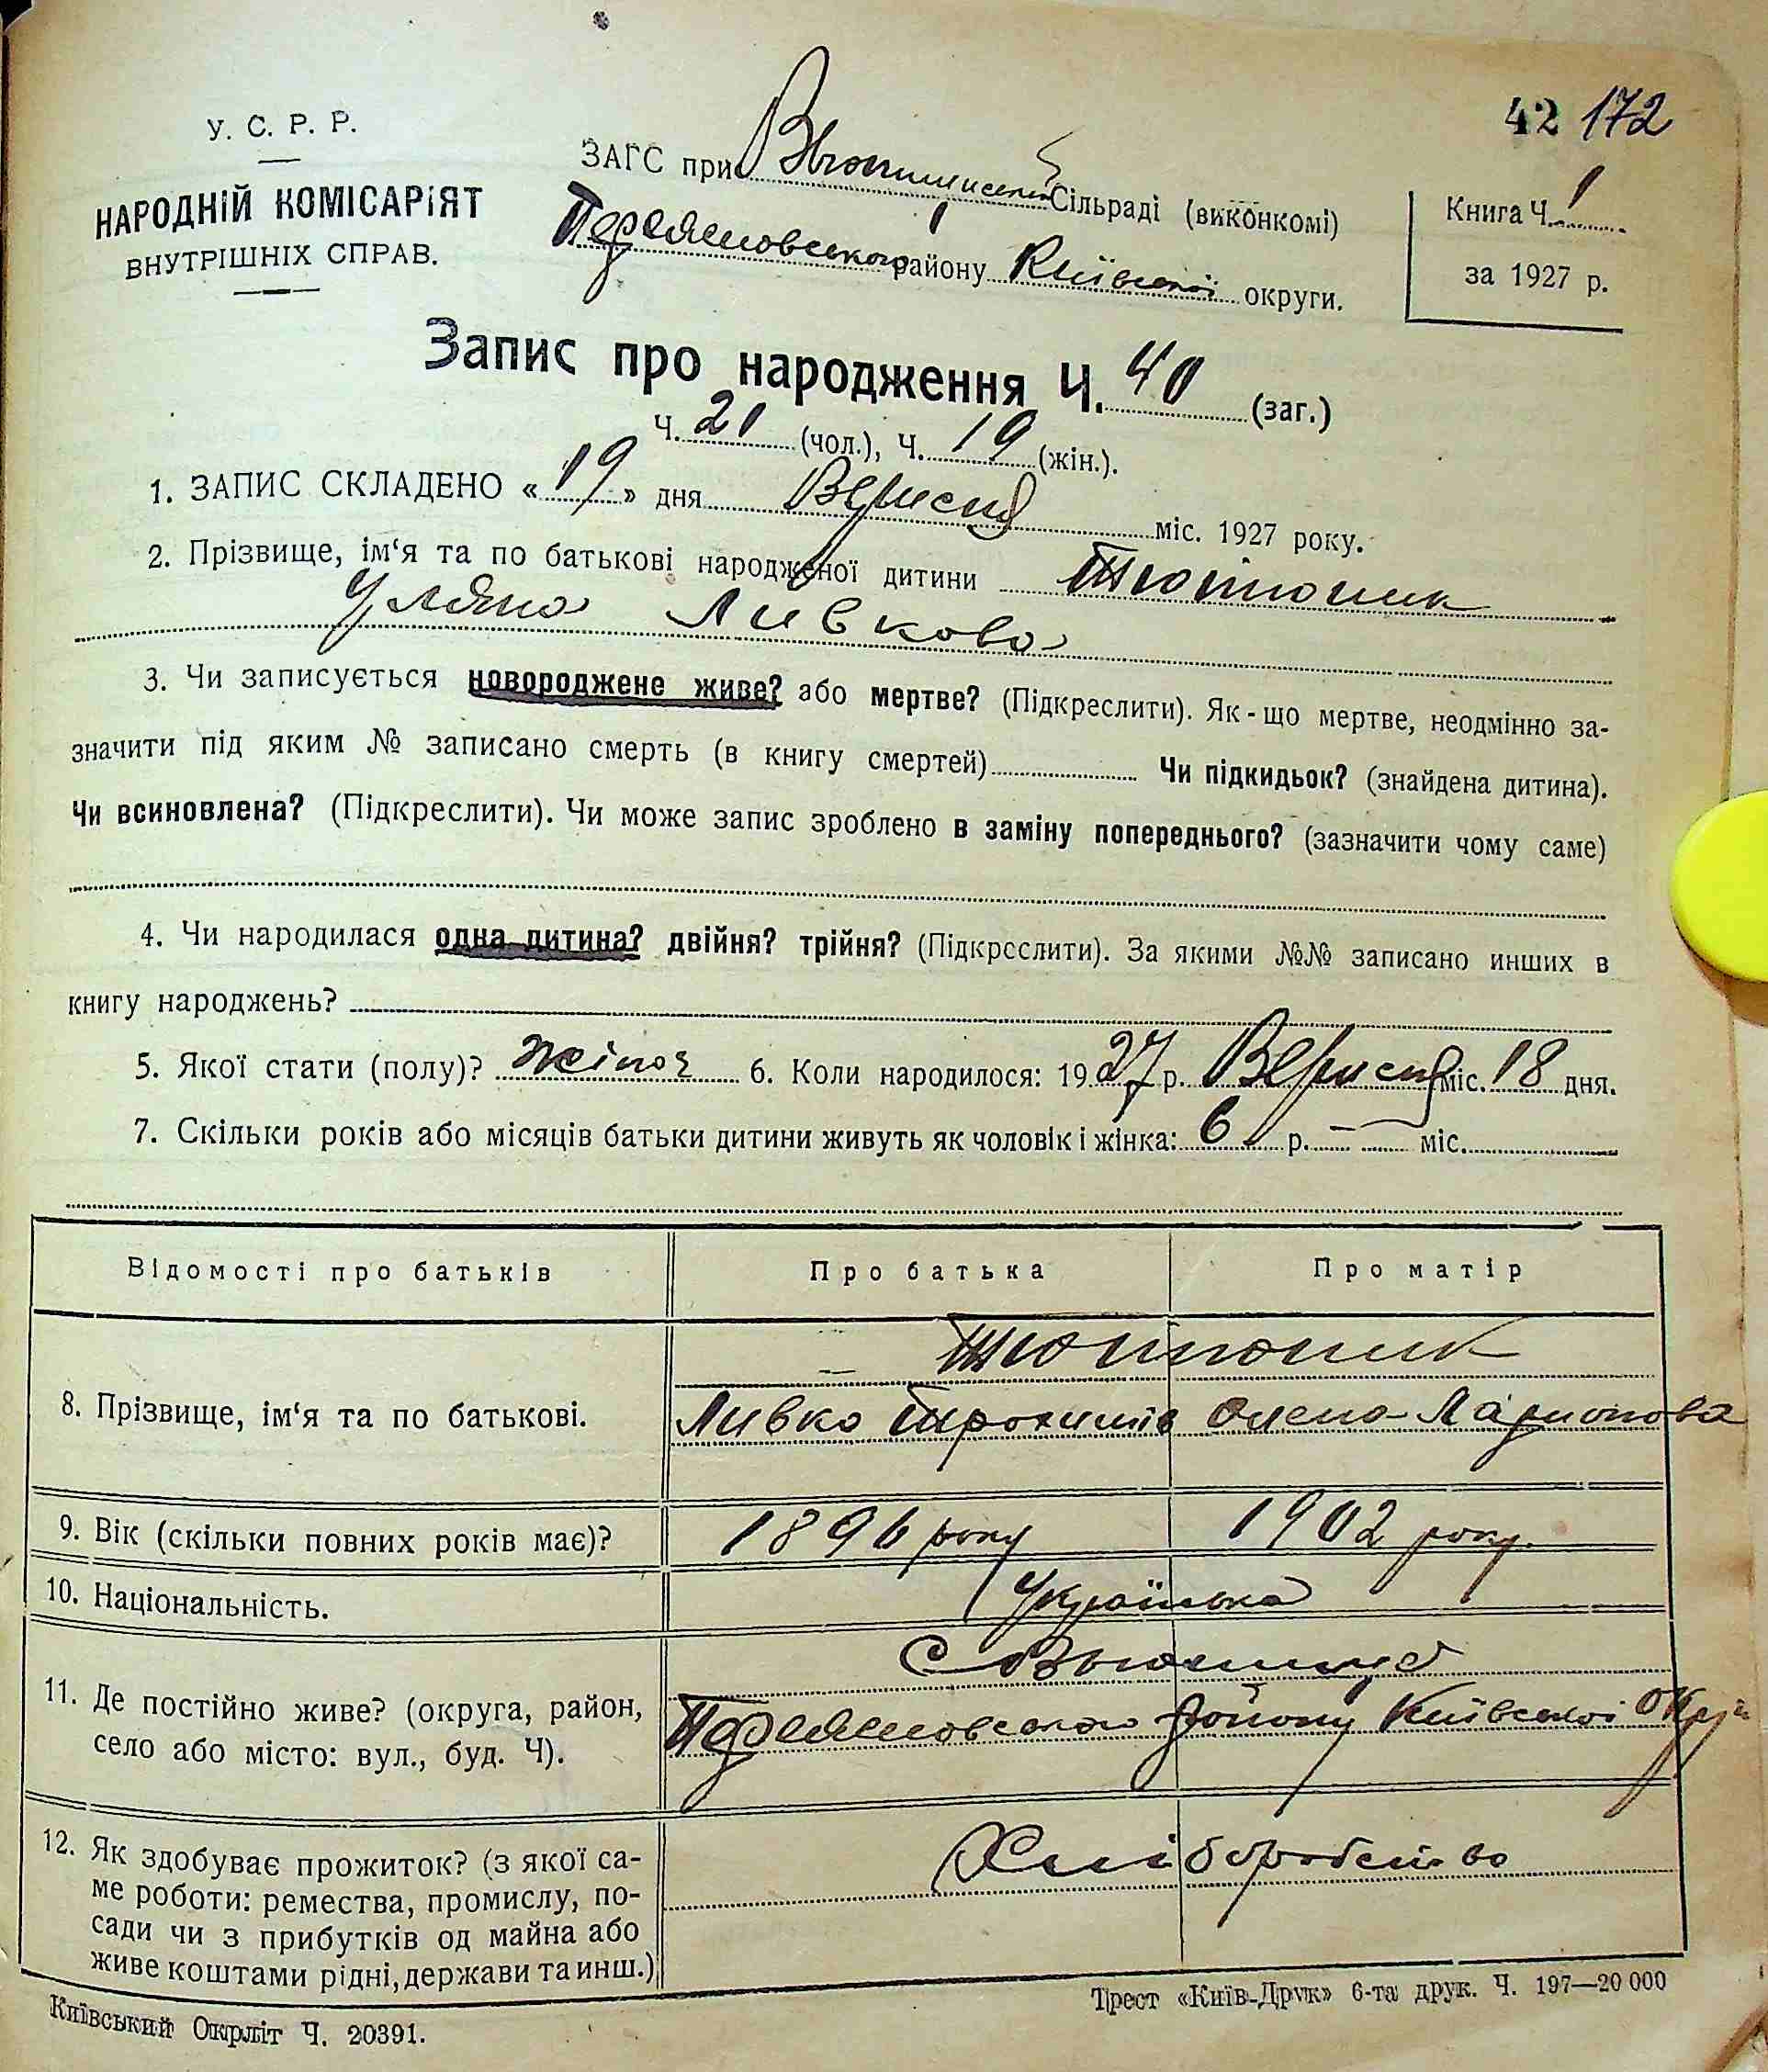 42 172
У. С. Р. Р.
НАРОДНІЙ КОМІСАРІЯТ
ВНУТРІШНІХ СПРАВ.
ЗАГС при Вьюнищській Сільраді (виконкомі)
Переяславського району Київської округи.
Книга Ч. 1
за 1927 р.
Запис про народження Ч. 40 (заг.)
Ч. 21 (чол.), Ч. 19 (жін.).
1. ЗАПИС СКЛАДЕНО «19» дня Вересня міс. 1927 року.
2. Прізвище, ім‘я та по батькові народженої дитини Тютюник
Уляна Ливкова
3. Чи записується новороджене живе? або мертве? (Підкреслити). Як-що мертве, неодмінно за-
значити під яким № записано смерть (в книгу смертей) Чи підкидьок? (знайдена дитина).
Чи всиновлена? (Підкреслити). Чи може запис зроблено в заміну попереднього? (зазначити чому саме)
4. Чи народилася одна дитина? двійня? трійня? (Підкреслити). За якими №№ записано инших в
книгу народжень?
5. Якої стати (полу)? жіноч 6. Коли народилося: 1927 р. Вересня міс. 18 дня.
7. Скільки років або місяців батьки дитини живуть як чоловік і жінка: 6 р. — — міс.
Відомості про батьків Про батька Про матір
Тютюник
8. Прізвище, ім‘я та по батькові. Ливко Трохимів Олена Ларионова
9. Вік (скільки повних років має)? 1896 року 1902 року.
10. Національність. Українська
с Вьюнища
11. Де постійно живе? (округа, район, Переяславського району Київської окру
село або місто: вул., буд. Ч).
12. Як здобуває прожиток? (з якої са- Хліборобство
ме роботи: ремества, промислу, по-
сади чи з прибутків од майна або
живе коштами рідні, держави та инш.)
Київський Окрліт Ч. 20391.
Трест «Київ-Друк» 6-та друк. Ч. 197—20 000